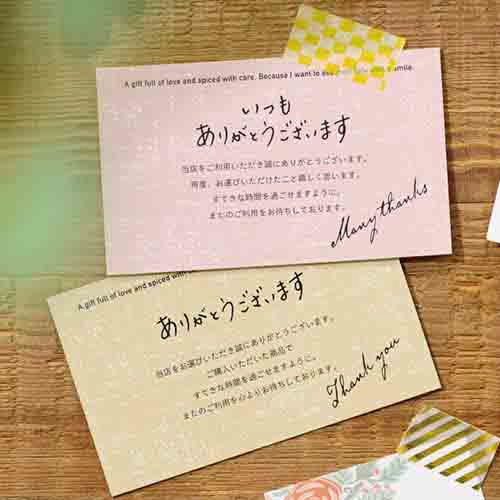 A gift full of love and spiced with care. Because I want to see smile.
いつも
ありがとうございます
当店をご利用いただき誠にありがとうございます。
再度、お選びいただけたこと嬉しく思います。
すてきな時間を過ごせますように。
またのご利用をお待ちしております。
Many thanks
A gift full of love and spiced with
ありがとうございます
当店をお選びいただき誠にありがとうございます。
ご購入いただいた商品で
すてきな時間を過ごせますように。
またのご利用を心よりお待ちしております。
Thank you